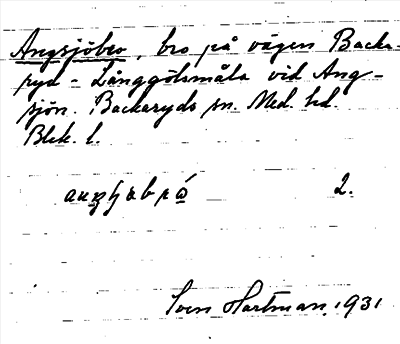 Angsjöbro, bro på vägen Backa-
ryd - Långgölsmåla vid Ang-
sjön. Backaryds sn. Med. hd.
Blek. l.
2.
Sven Hartman, 1931